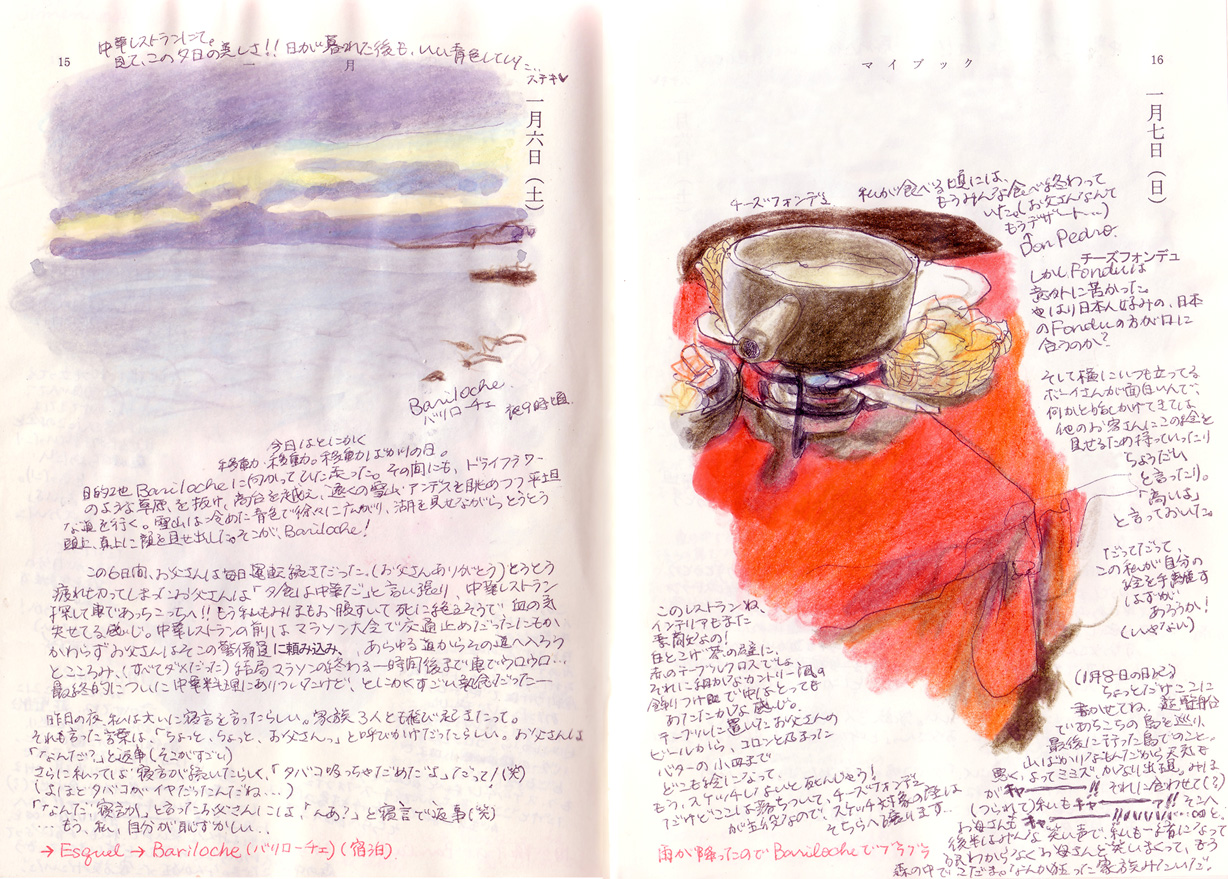 15
一月
中華レストランにて。
見て、この夕日の美しさ!! 日が暮れた後も、いい青色してして…
ステキ♥
一月六日(土)
Bariloche.
バリローチェ 夜9時頃
今日はとにかく
移動・移動。移動ばかりの日。
目的地 Barilocheに向かってひた走った。その間にも、ドライフラワー
のような草原を抜け、高台を越え、遠くの雪山・アンデスを眺めつつ平坦
な道を行く。雪山は冷めた青色で徐々に広がり、湖を見せながらとうとう
頭上、真上に顔を見せ出した。そこが、Bariloche!
この6日間、お父さんは毎日運転続きだった。(お父さんありがとう)とうとう
疲れ切ってしまったお父さんは「夕食は中華だ」と言い張り、中華レストラン
探して車であっちこっちへ!! もう私もみほもお腹すいて死に絶えそうで血の気
失せてる感じ。中華レストランの前はマラソン大会で交通止めだったにもか
かわらずお父さんはその警備員に頼み込み、あらゆる道からその道へ入ろう
とこころみ、(すべてダメだった)結局マラソンの終わる一時間後まで車でウロウロ…
最終的についに中華料理にありついたけど、とにかくすごい執念だった――
昨日の夜、私は大いに寝言を言ったらしい。家族3人とも飛び起きたって。
それも言った言葉は、「ちょっと、ちょっと、お父さんっ」と呼びかけだったらしい。お父さんは
「なんだ?」と返事(そこがすごい)
さらに私ってば寝言が続いたらしく、「タバコ吸っちゃだめだよ」だって!(笑)
(よほどタバコがイヤだったんだね…)
「なんだ、寝言か」と言ったお父さんには、「んあ?」と寝言で返事(笑)
…もう、私、自分が恥ずかしい..
→ Esquel → Bariloche(バリローチェ)(宿泊)
マイブック
16
一月七日(日)
チーズフォンデュ
私が食べる頃には、
もうみんな食べ終わって
いた。(お父さんなんて
もうデザート…)
↑
Don Pedro.
チーズフォンデュ
しかし Fonduは
意外に苦かった。
やはり日本人好みの、日本
のFonduの方が口に
合うのか?
そして横にいつも立ってる
ボーイさんが面白い人で、
何かと話しかけてきては
他のお客さんにこの絵を
見せるため持っていったり
ちょうだい
と言ったり。
「高いよ」
と言っておいた。
だってだって、
この私が自分の
絵を手離す
はずが
あろうか!
(いやない)
このレストランね、
インテリアもまた
素聞文なの!
白とこげ茶の壁に、
赤のテーブルクロスでしょ、
それに細かなカントリー風の
飾りつけ皿で中はとっても
あたたかな感じ。
テーブルに置いたお父さんの
ビールから、コロンと丸まった
バターの小皿まで
どこも絵になって、
もう、スケッチしないと死んじゃう!
だけどここは落ちついて、チーズフォンデュ
が主役なので、スケッチ対象の座は
そちらへ譲ります…
雨が降ったのでBarilocheでブラブラ
(1月8日の日記)
ちょっとだけここに
書かせてね。遊覧船
であちこちの島を巡り、
最後に行った島でのこと。
山ばかりなもんだから天気も
悪く、よってミミズ、かなり出現。みほ
がギャー――!! それに合わせて(?)
(つられて)私もキャー――ァ!! そこへ
お母さんもキャ――!!と、
後半はみんな笑い声で、私も一緒になって
訳わからなくお母さんと笑いまくって、もう
森の中でこだま。なんか狂った家族みたいだ。